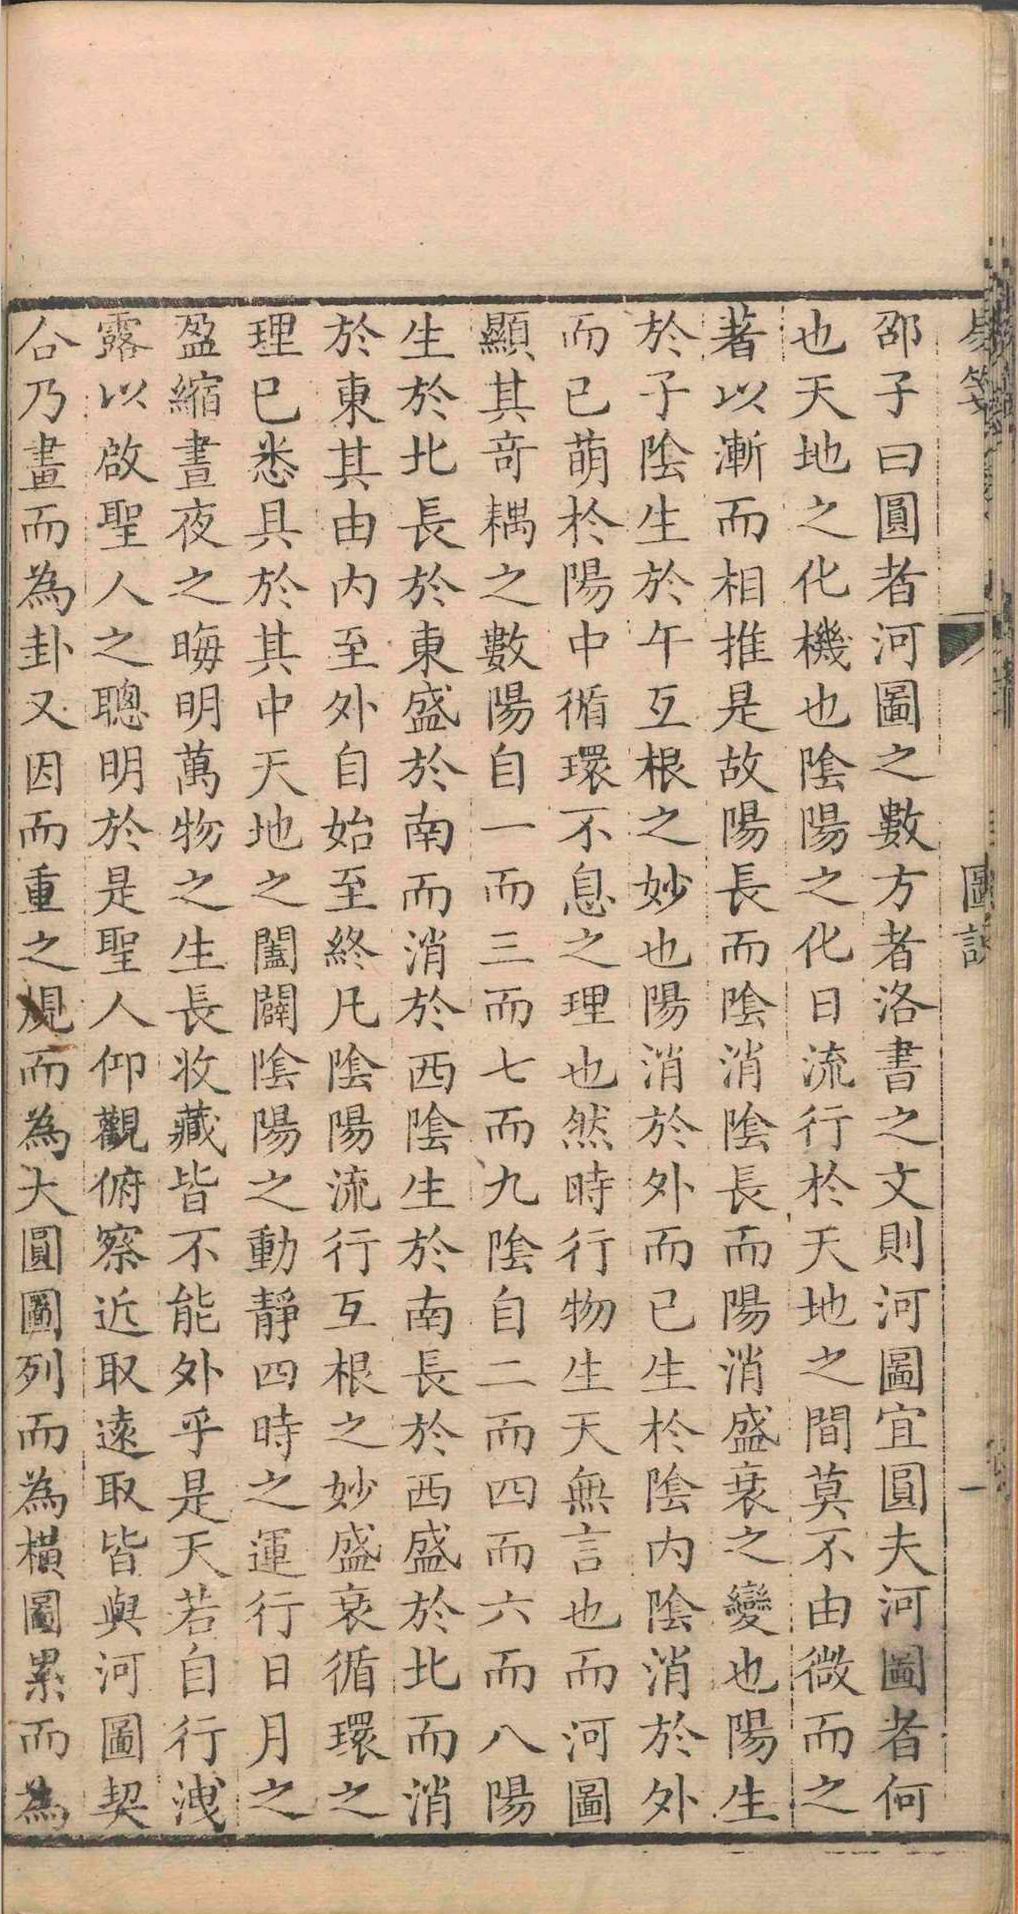 易箋
圖說
一
邵子曰圓者河圖之數方者洛書之文則河圖宜圓夫河圖者何
也天地之化機也陰陽之化日流行於天地之間莫不由微而之
著以漸而相推是故陽長而陰消陰長而陽消盛衰之變也陽生
於子陰生於午互根之妙也陽消於外而已生於陰內陰消於外
而已萌於陽中循環不息之理也然時行物生天無言也而河圖
顯其奇耦之數陽自一而三而七而九陰自二而四而六而八陽
生於北長於東盛於南而消於西陰生於南長於西盛於北而消
於東其由內至外自始至終凡陰陽流行互根之妙盛衰循環之
理已悉具於其中天地之闔闢陰陽之動靜四時之運行日月之
盈縮晝夜之晦明萬物之生長收藏皆不能外乎是天若自行洩
露以啟聖人之聰明於是聖人仰觀俯察近取遠取皆與河圖契
合乃畫而為卦又因而重之規而為大圓圖列而為橫圖累而為